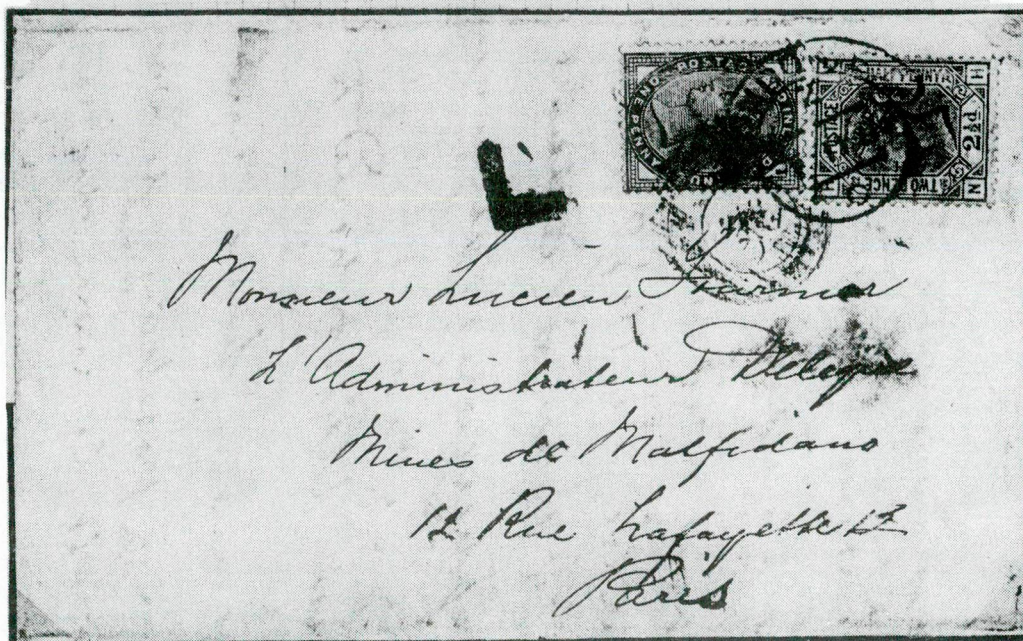 L
POSTAGE
2½d
Monsieur Lucien Fournier
L'Administrateur Délégué
Mines de Malfidano
12 Rue Lafayette 12
Paris